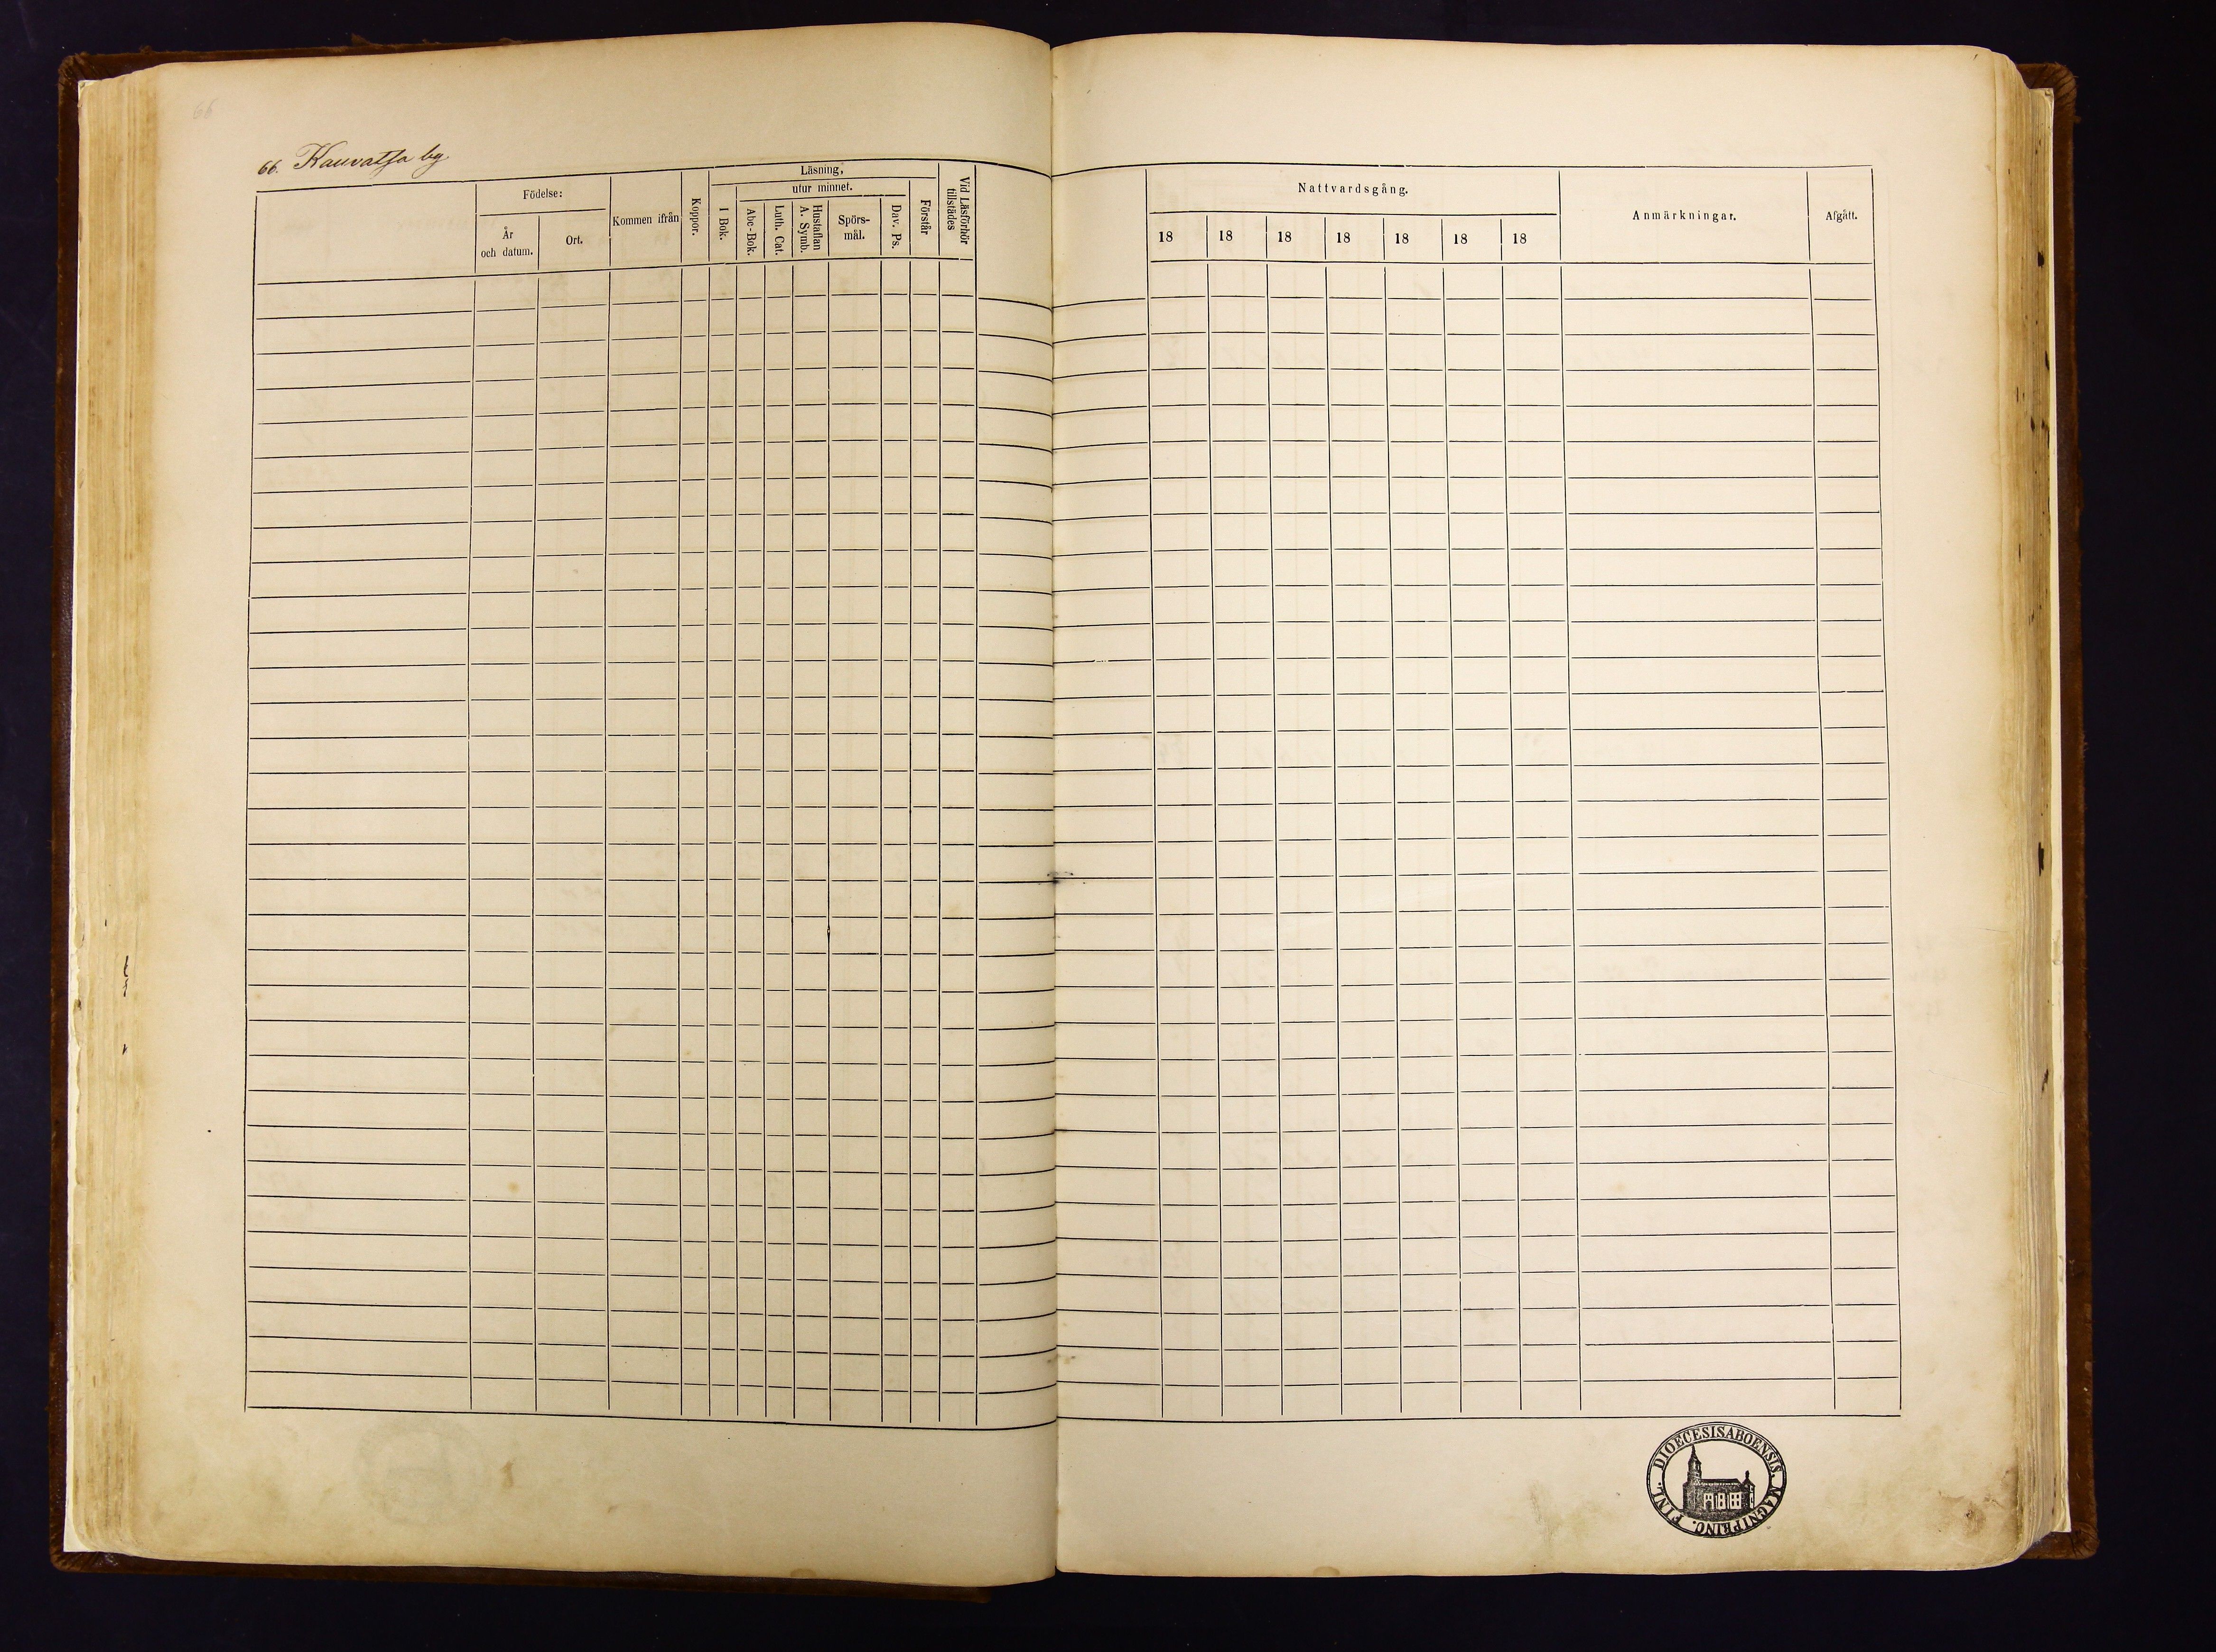 66
66. Kauvatsa by
Födelse:
År
och datum.
Ort.
Kommen ifrån
Koppor.
Läsning,
I Bok.
utur minnet.
Abc-Bok.
Luth. Cat.
Hustaflan
A. Symb.
Spörs-
mål.
Dav. Ps.
Förstår
Vid Läsförhör
tillstädes
Nattvardsgång.
18 18 18 18 18 18 18
Anmärkningar.
Afgått.
DIOECESIS ABOENSIS. MAGNI PRINC. FINL.